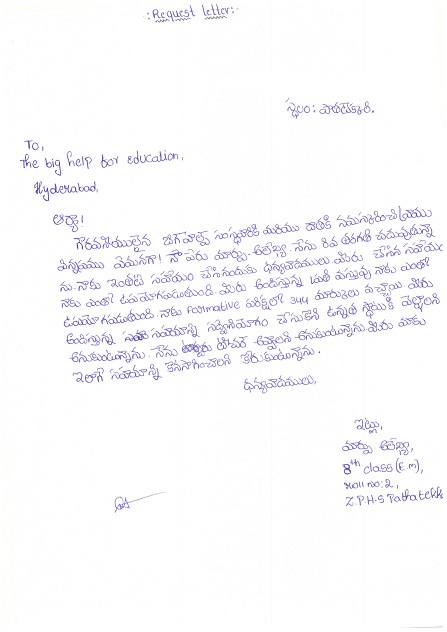 :Request letter:-
స్థలం: పాతటెక్కలి.
To,
The big help for education,
Hyderabad,
ఆర్యా!
గౌరవనీయులైన బిగ్‌హెల్ప్ సంస్థవారికి మరియు దాతకి నమస్కరించి వ్రాయు
విన్నపము ఏమనగా! నా పేరు మార్పు. అలేఖ్య. నేను 8వ తరగతి చదువుతున్నా
ను. నాకు ఇంతటి సహాయం చేసినందుకు ధన్యవాదములు మీరు చేసిన సహాయం
నాకు ఎంతో ఉపయోగపడుతుంది. మీరు అందిస్తున్న ప్రతీ వస్తువు నాకు ఎంతో
ఉపయోగపడుతుంది. నాకు Formative పరీక్షలో 344 మార్కులు వచ్చాయి. మీరు
అందిస్తున్న సహాయాన్ని సద్వినియోగం చేసుకొని ఉన్నత స్థాయికి వెళ్లాలని
అనుకుంటున్నాను. నేను టీచర్ అవ్వాలని అనుకుంటున్నాను. మీరు మాకు
ఇలాగే సహాయాన్ని కొనసాగించాలని కోరుకుంటున్నాను.
ధన్యవాదములు,
ఇట్లు,
మార్పు అలేఖ్య,
8th class (E.m),
Roll no: 2,
Z.P.H.S Pathatekk